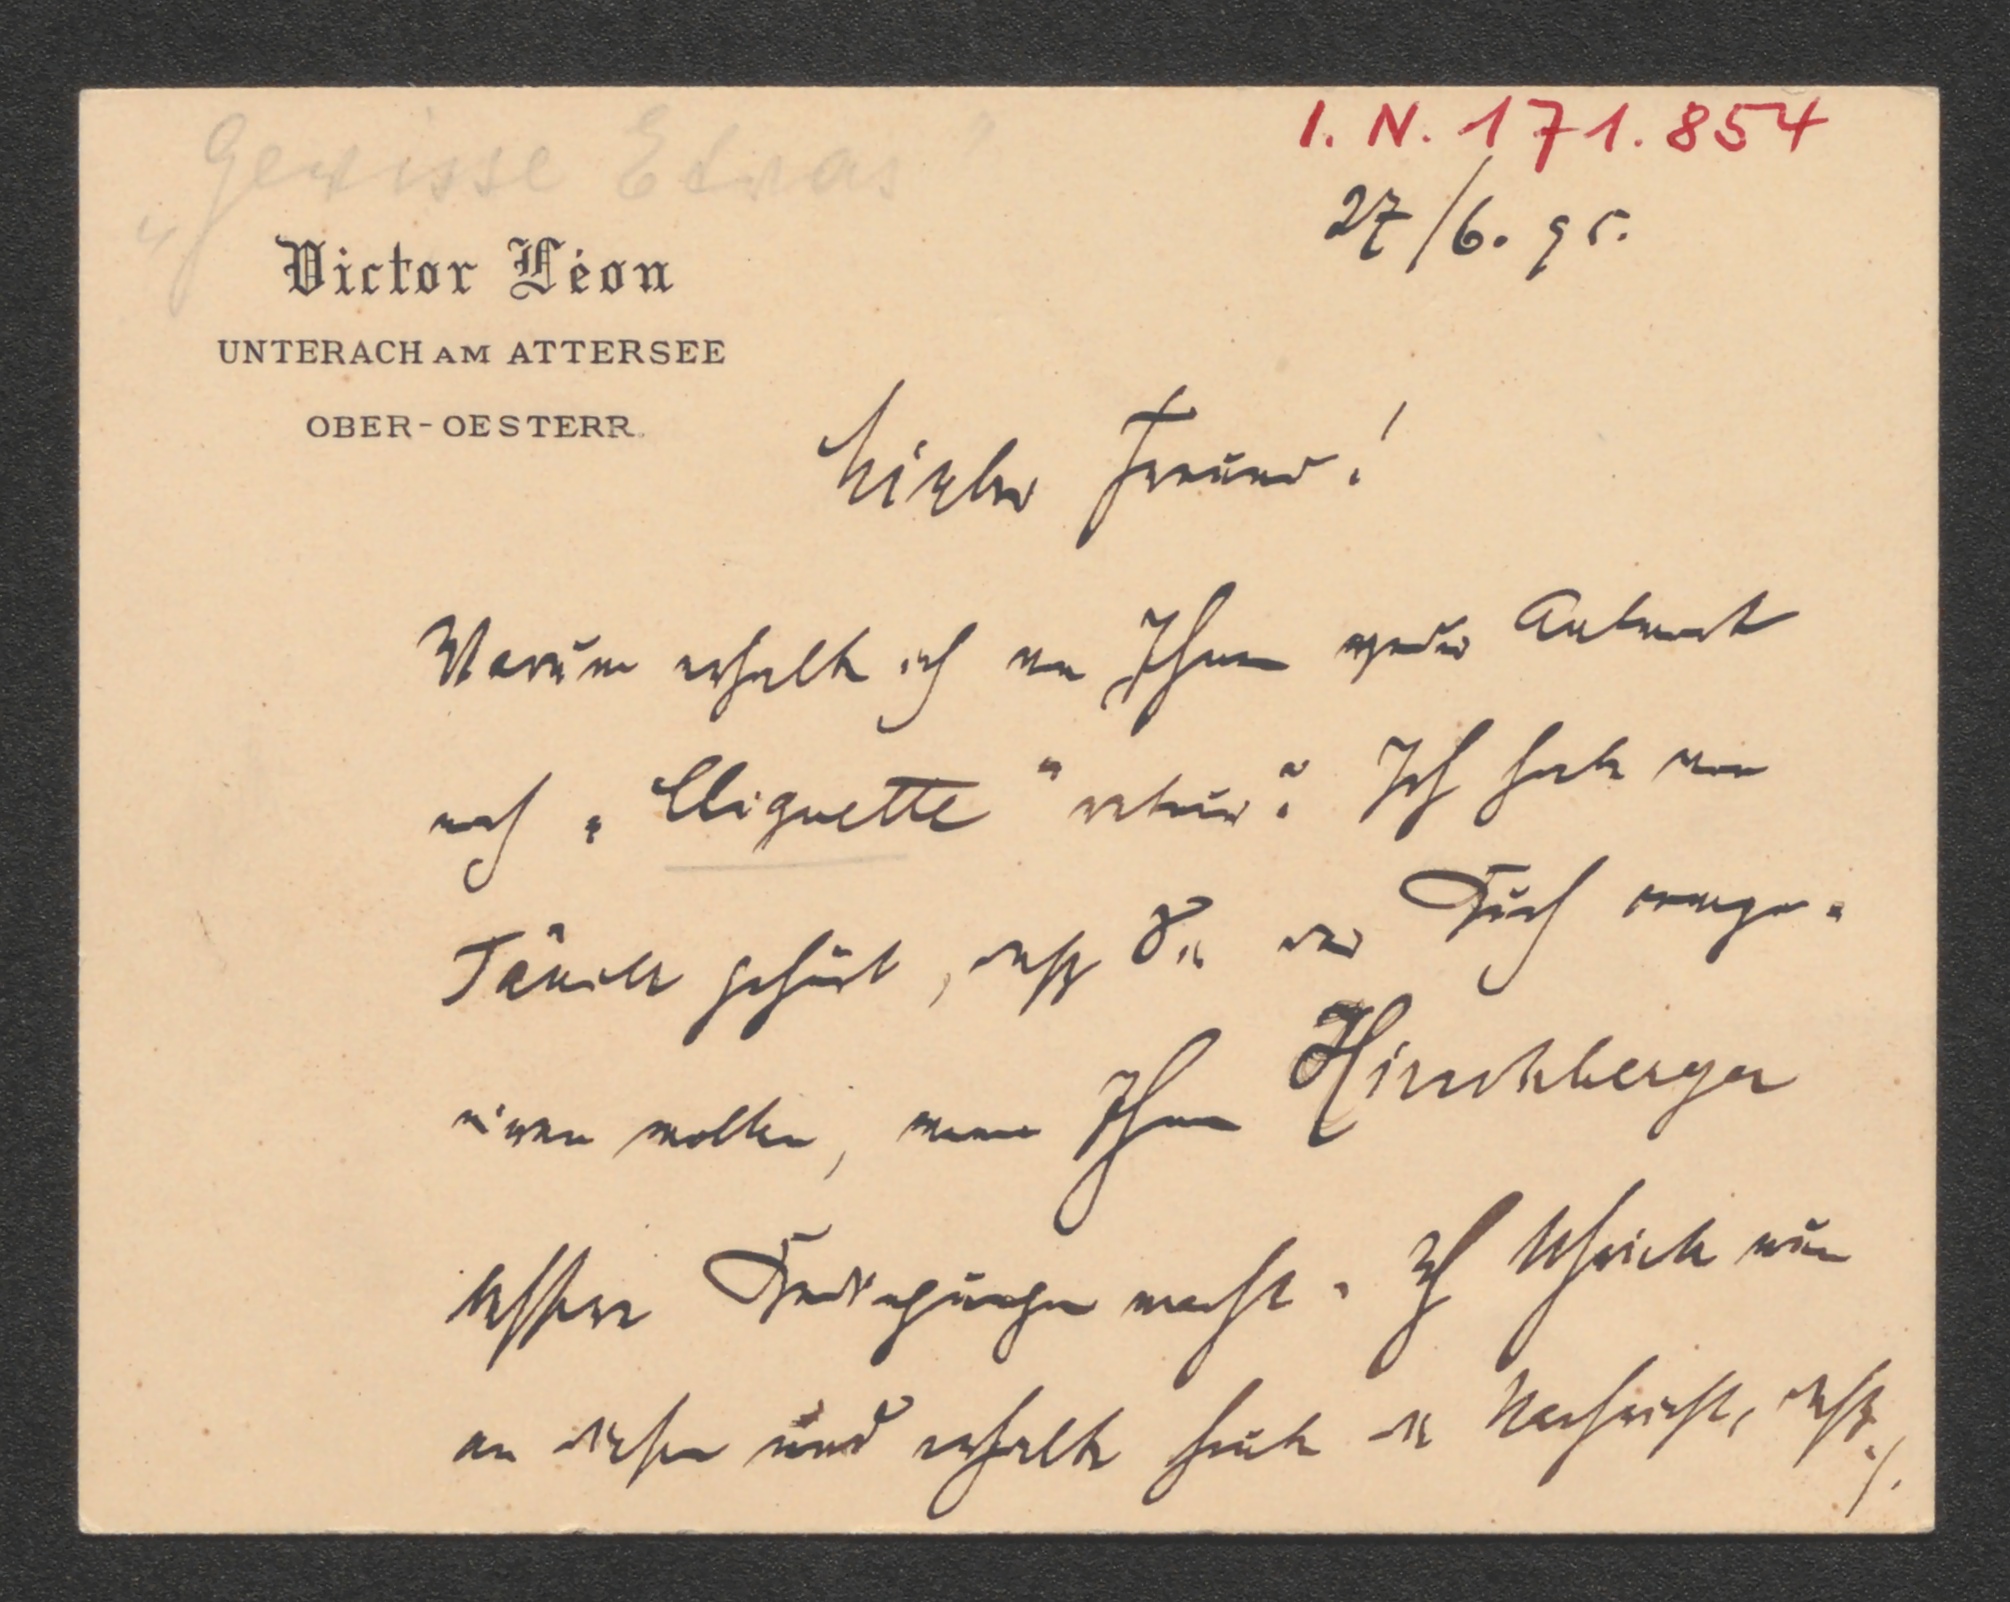 „Gewisse Etwas"
I. N. 171.854
27/6. 95.
Victor Léon
UNTERACH AM ATTERSEE
OBER-OESTERR.
Lieber Freund!
Warum erhalte ich von Ihnen weder Antwort
noch „Cliquette" retour? Ich habe von
Täuber gehört, dass Sie das Buch componieren
wollen, wenn Ihnen Hirschberger
bessere Bedingungen macht. Ich schrieb nun
an diesen und erhalte heute die Nachricht, dass ./.